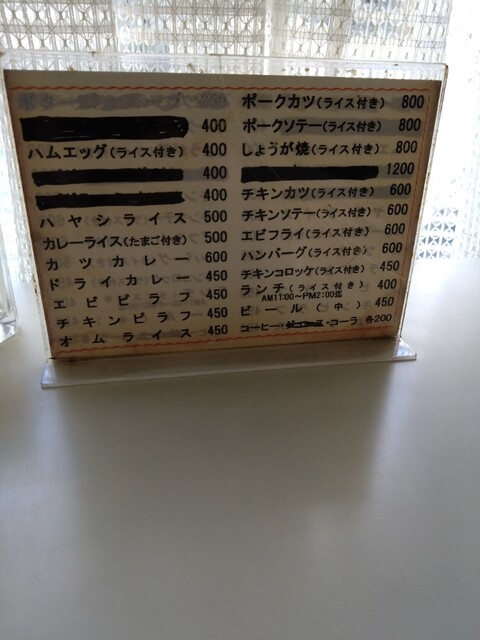 400
ハムエッグ(ライス付き) 400
400
400
ハヤシライス 500
カレーライス(たまご付き) 500
カツカレー 600
ドライカレー 450
エビピラフ 450
チキンピラフ 450
オムライス 450
ポークカツ(ライス付き) 800
ポークソテー(ライス付き) 800
しょうが焼(ライス付き) 800
1200
チキンカツ(ライス付き) 600
チキンソテー(ライス付き) 600
エビフライ(ライス付き) 600
ハンバーグ(ライス付き) 600
チキンコロッケ(ライス付き) 450
ランチ(ライス付き) 400
AM11:00~PM2:00迄
ビール(中) 450
コーヒー・・コーラ 各200